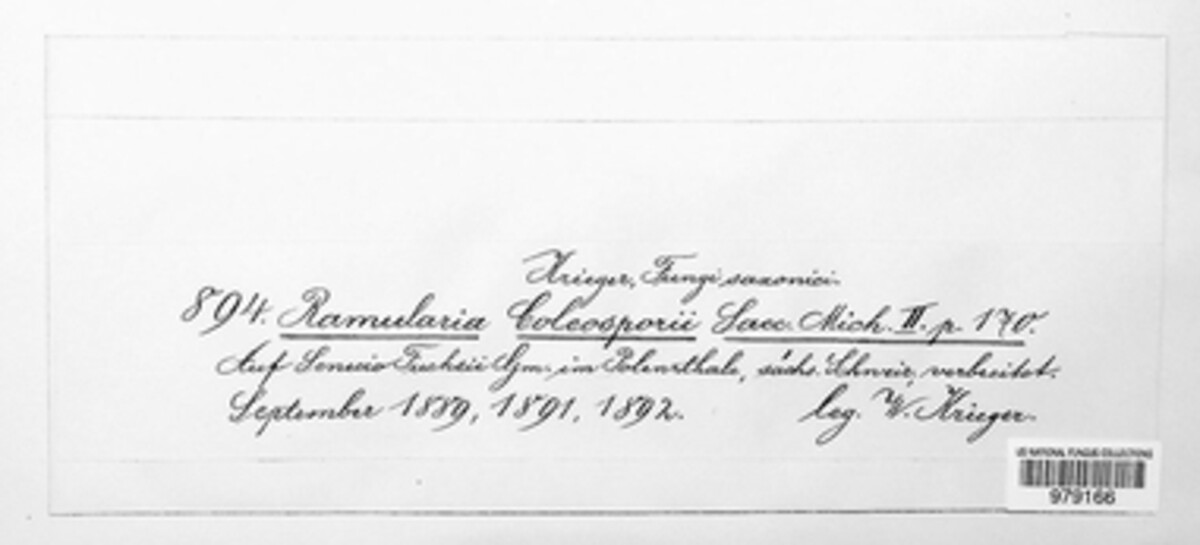 Krieger, Fungi saxonici.
894. Ramularia Coleosporii Sacc. Mich. III. p. 170.
Auf Senecio Fuchsii Gm. im Polenzthale, sächs. Schweiz, verbreitet.
September 1889, 1891, 1892. leg. W. Krieger.
US NATIONAL FUNGUS COLLECTIONS
979166